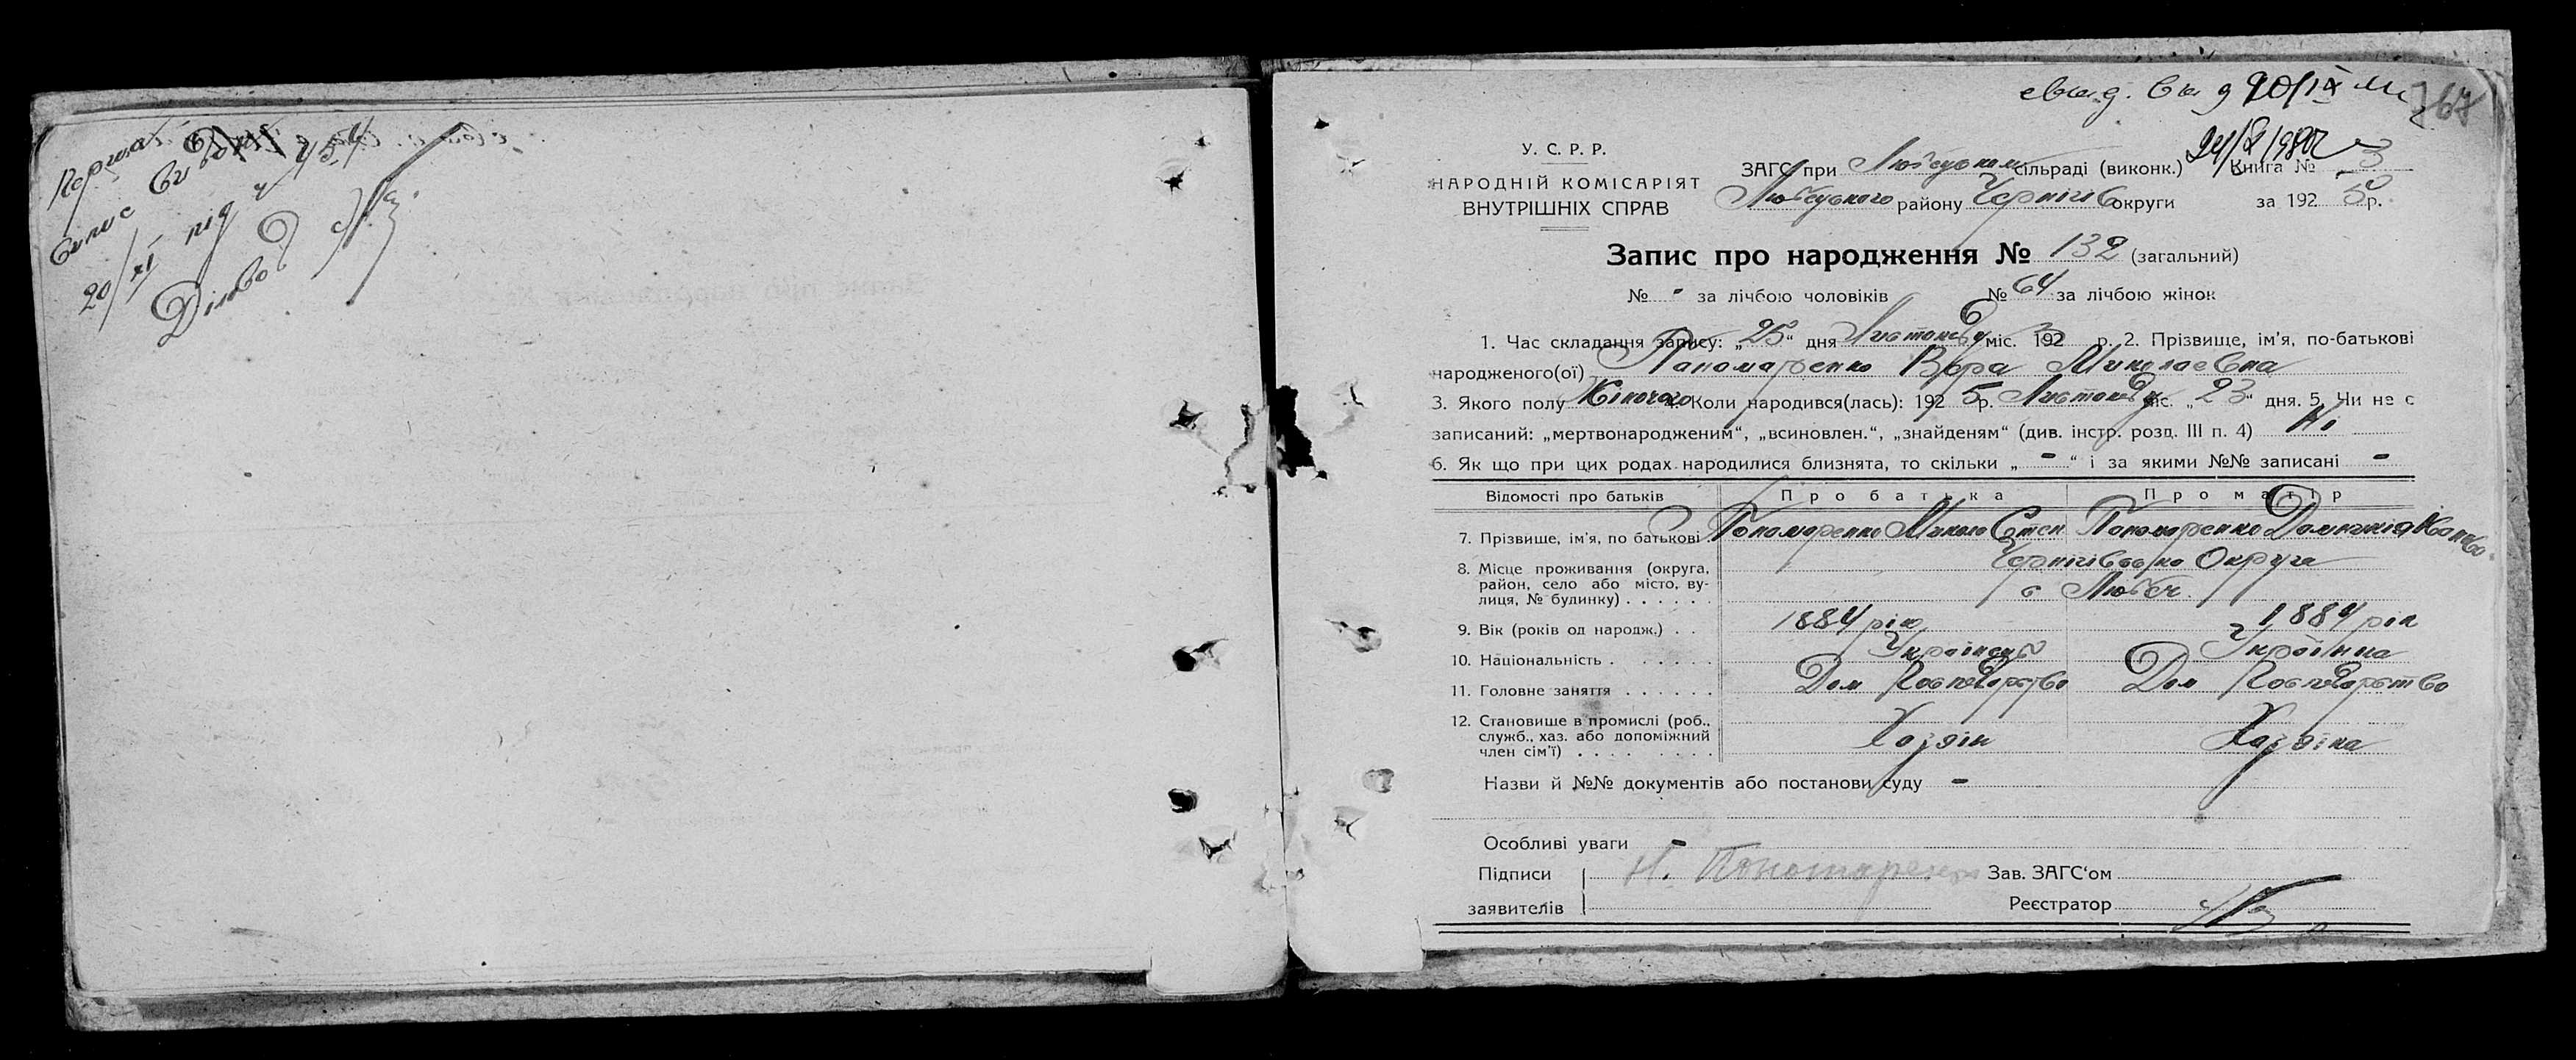 випис
20/XI під ч 454
Діловод
свид.
767
24/X/1980г
У. С. Р. Р.
НАРОДНІЙ КОМІСАРІЯТ
ВНУТРІШНІХ СПРАВ
ЗАГС при Любецьком сільраді (виконк.) Книга № 3
Любецького району Чернігів округи за 192 5 р.
Запис про народження № 132 (загальний)
№ - за лічбою чоловіків № 64 за лічбою жінок
1. Час складання запису: „25“ дня Листопад міс. 192 р. 2. Прізвище, ім'я, по-батькові
народженого(ої) Панамаренко Вера Миколаевна
3. Якого полу Жіночого 4. Коли народився(лась): 192 5 р. Листопад міс. „23“ дня. 5. Чи не є
записаний: „мертвонародженим“, „всиновлен.“, „знайденям“ (див. інстр. розд. III п. 4) Ні
6. Як що при цих родах народилися близнята, то скільки „-“ і за якими №№ записані -
Відомості про батьків Про батька Про матір
7. Прізвище, ім'я, по батькові Пономаренко Микола Степ Пономаренко Домникія
8. Місце проживання (округа, Чернігівська Округа
район, село або місто, ву- с Любеч.
лиця, № будинку) . . . . . .
9. Вік (років од народж.) . . 1884 рік 1884 рік
10. Національність . . . . . . Українець Українка
11. Головне заняття . . . . . . Дом Господарство Дом Господарство
12. Становище в промислі (роб.,
служб., хаз. або допоміжний Хозяін Хазяїка
член сім'ї) . . . . . . . .
Назви й №№ документів або постанови суду -
Особливі уваги -
Підписи Н. Пономаренко Зав. ЗАГС'ом
заявителів Реєстратор